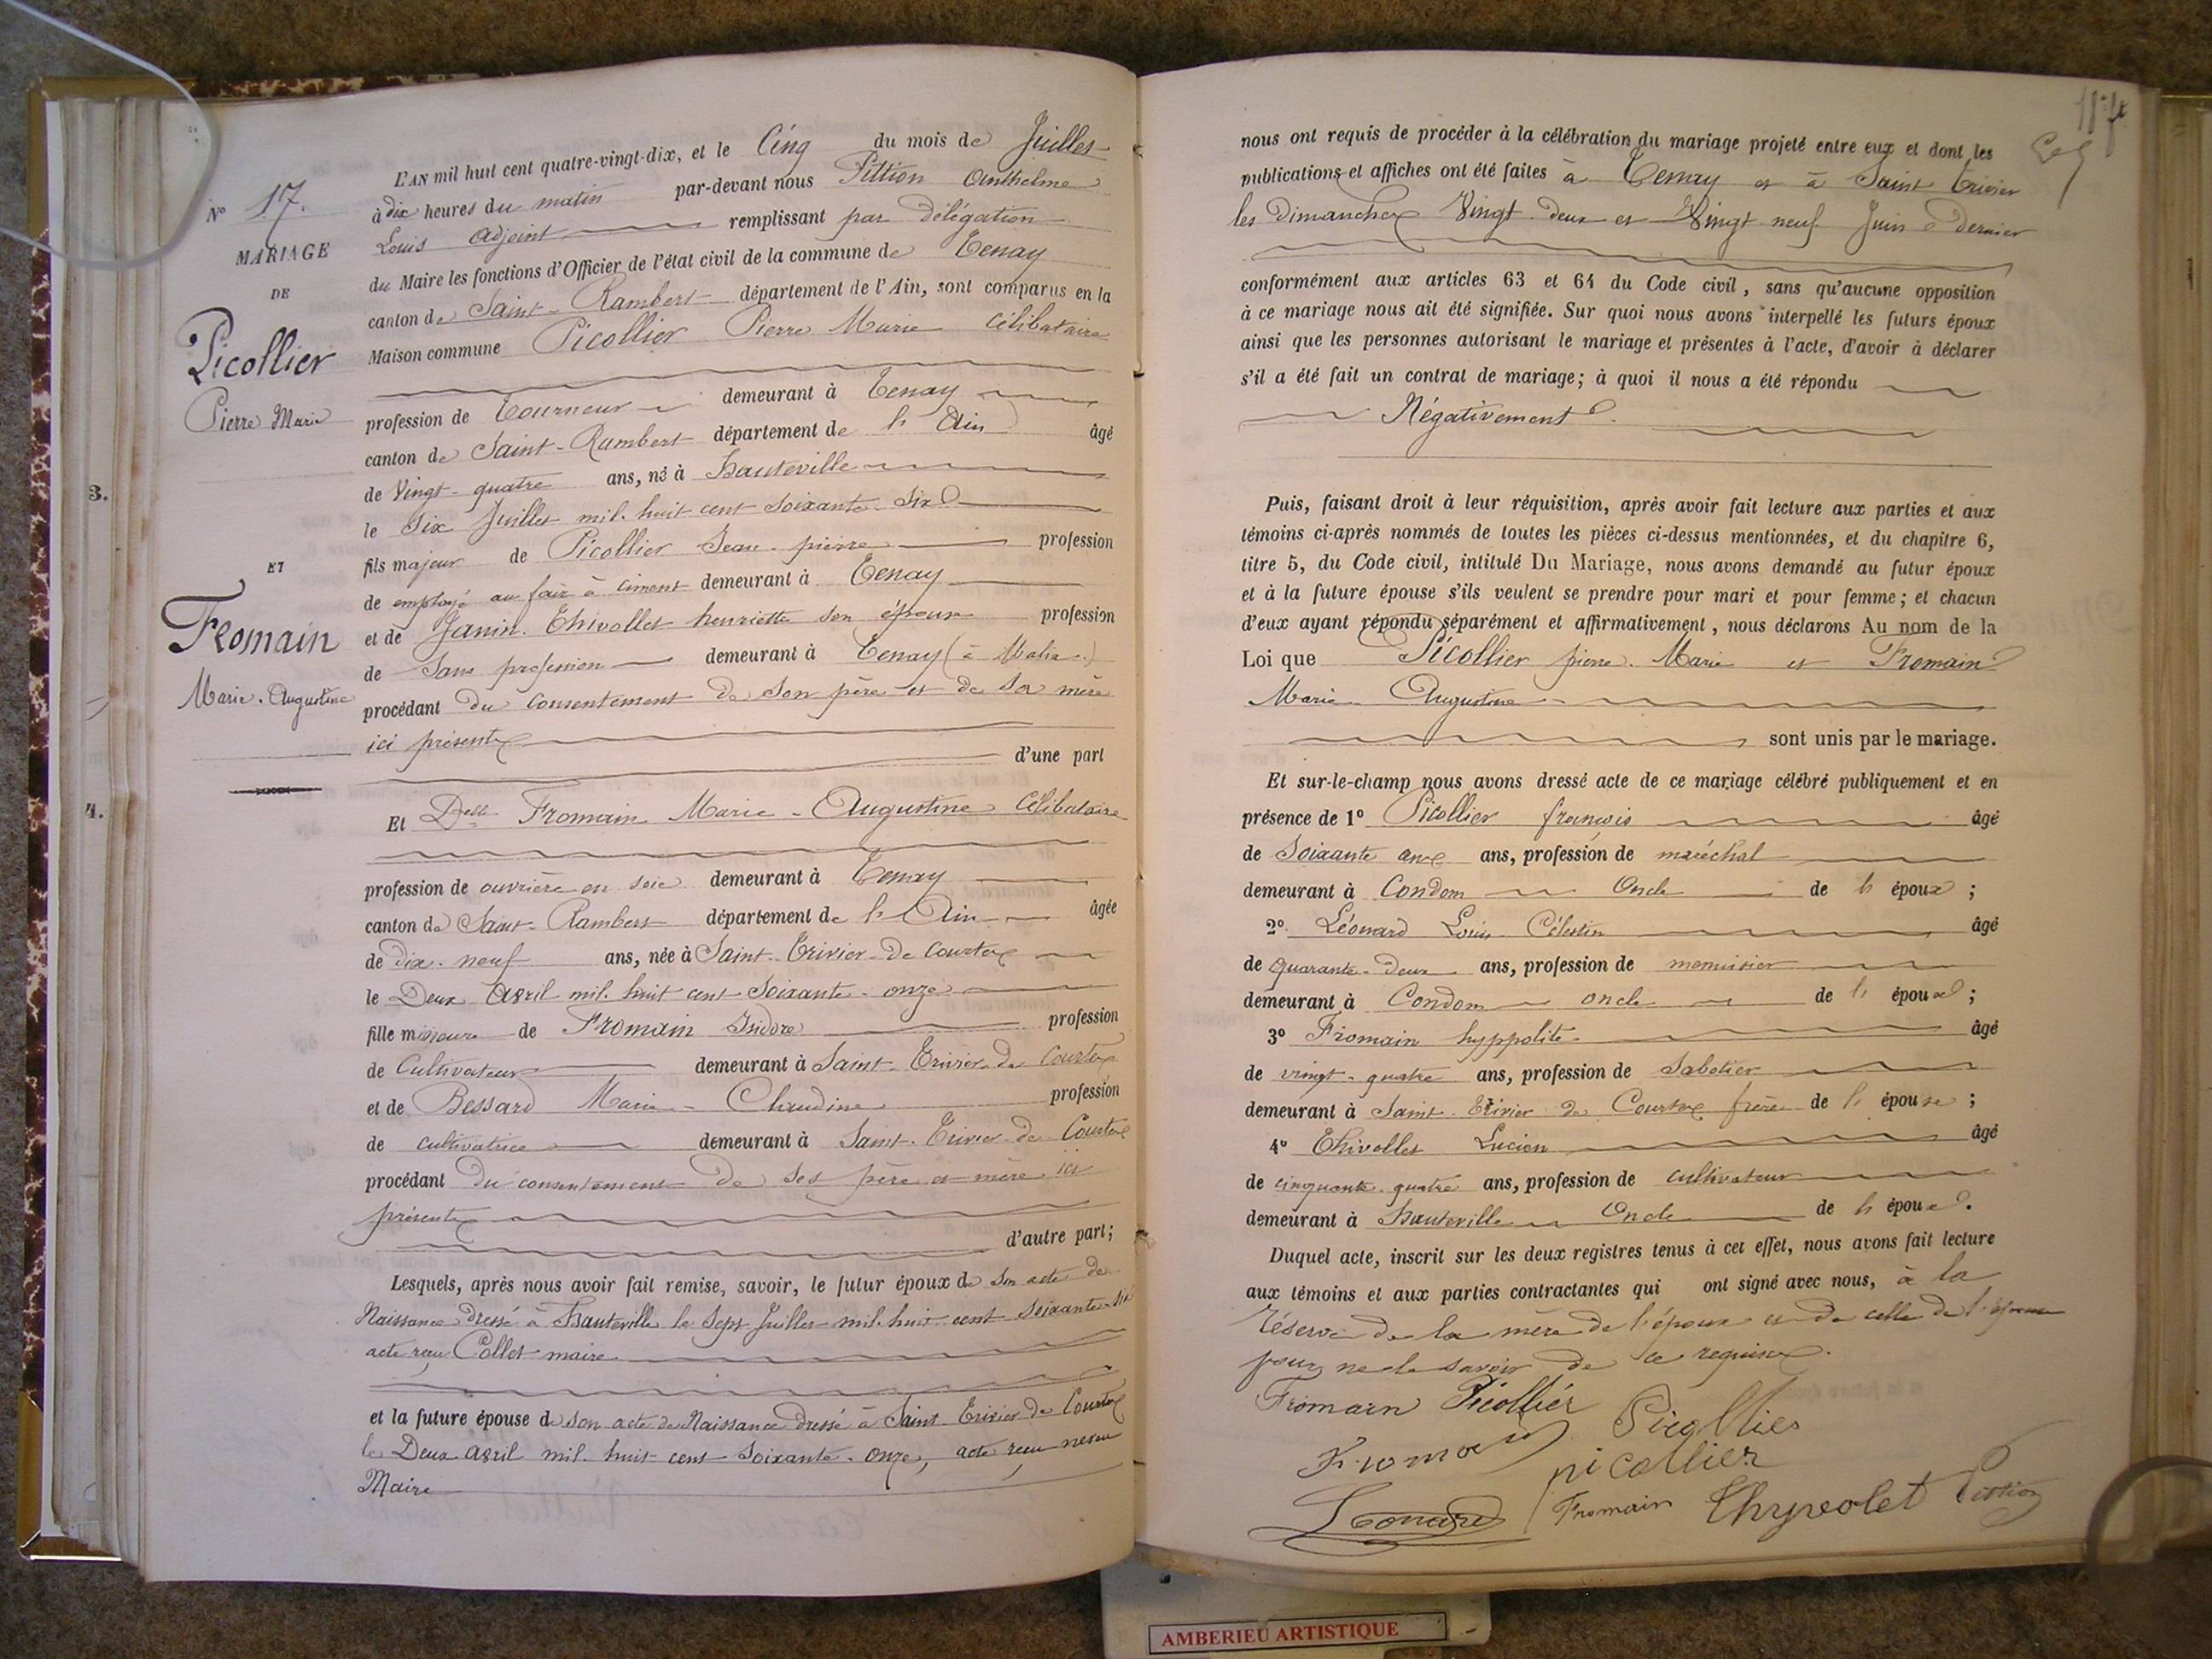 L'AN mil huit cent quatre-vingt-dix, et le Cinq du mois de Juillet
à dix heures du matin par-devant nous Pittion Anthelme
Louis adjoint remplissant par délégation
du Maire les fonctions d'Officier de l'état civil de la commune de Tenay
canton de Saint-Rambert département de l'Ain, sont comparus en la
Maison commune Picollier Pierre Marie célibataire
profession de Tourneur demeurant à Tenay
canton de Saint-Rambert département de l'Ain âgé
de Vingt-quatre ans, né à Hauteville
le Six Juillet mil-huit cent soixante-six
fils majeur de Picollier Jean-pierre profession
de employé au four à ciment demeurant à Tenay
et de Janin-Thivollet henriette son épouse profession
de Sans profession demeurant à Tenay (à Malix)
procédant du consentement de son père et de sa mère
ici présents
d'une part
Et Delle Fromain Marie-Augustine célibataire
profession de ouvrière en soie demeurant à Tenay
canton de Saint-Rambert département de l'Ain âgée
de dix-neuf ans, née à Saint-Trivier-de Courtes
le Deux Avril mil-huit cent soixante-onze
fille mineure de Fromain Isidore profession
de Cultivateur demeurant à Saint-Trivier-de Courtes
et de Bessard Marie-Claudine profession
de cultivatrice demeurant à Saint-Trivier-de Courtes
procédant du consentement de ses père et mère ici
présents
d'autre part;
Lesquels, après nous avoir fait remise, savoir, le futur époux de son acte de
Naissance dressé à Hauteville le Sept Juillet mil-huit cent soixante-six
acte reçu Collet maire
et la future épouse de son acte de Naissance dressé à Saint Trivier de Courtes
le Deux avril mil-huit-cent-soixante-onze, acte reçu
Maire
N° 17.
MARIAGE
DE
Picollier
Pierre Marie
ET
Fromain
Marie-Augustine
3.
4.
nous ont requis de procéder à la célébration du mariage projeté entre eux et dont les
publications et affiches ont été faites à Tenay et à Saint Trivier
les Dimanches Vingt-deux et Vingt-neuf Juin dernier
conformément aux articles 63 et 64 du Code civil, sans qu'aucune opposition
à ce mariage nous ait été signifiée. Sur quoi nous avons interpellé les futurs époux
ainsi que les personnes autorisant le mariage et présentes à l'acte, d'avoir à déclarer
s'il a été fait un contrat de mariage; à quoi il nous a été répondu
Négativement.
Puis, faisant droit à leur réquisition, après avoir fait lecture aux parties et aux
témoins ci-après nommés de toutes les pièces ci-dessus mentionnées, et du chapitre 6,
titre 5, du Code civil, intitulé Du Mariage, nous avons demandé au futur époux
et à la future épouse s'ils veulent se prendre pour mari et pour femme; et chacun
d'eux ayant répondu séparément et affirmativement, nous déclarons Au nom de la
Loi que Picollier pierre-Marie et Fromain
Marie Augustine
sont unis par le mariage.
Et sur-le-champ nous avons dressé acte de ce mariage célébré publiquement et en
présence de 1° Picollier françois âgé
de Soixante ans ans, profession de maréchal
demeurant à Condom Oncle de l'époux;
2° Léonard Louis Célestin âgé
de quarante-deux ans, profession de menuisier
demeurant à Condom oncle de l'époux;
3° Fromain hyppolite âgé
de vingt-quatre ans, profession de Sabotier
demeurant à Saint Trivier de Courtes frère de l'épouse;
4° Thivollet Lucien âgé
de cinquante-quatre ans, profession de cultivateur
demeurant à Hauteville Oncle de l'époux.
Duquel acte, inscrit sur les deux registres tenus à cet effet, nous avons fait lecture
aux témoins et aux parties contractantes qui ont signé avec nous, à la
réserve de la mère de l'époux et de celle de l'épouse
pour ne le savoir de ce requises.
Fromain Picollier
Picollier
Fromain
picollier
Léonard Fromain Thyvolet Pittion
AMBERIEU ARTISTIQUE